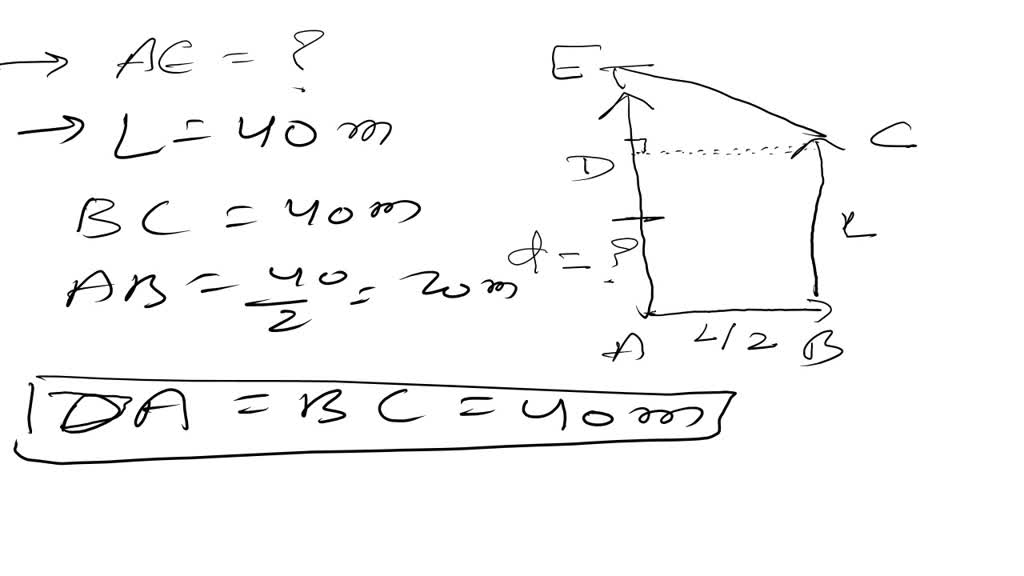 → AE = ?
→ L = 40 m
BC = 40 m
AB = 40/2 = 20 m
DA = BC = 40 m
E
C
D
L
d = ?
A
L/2
B